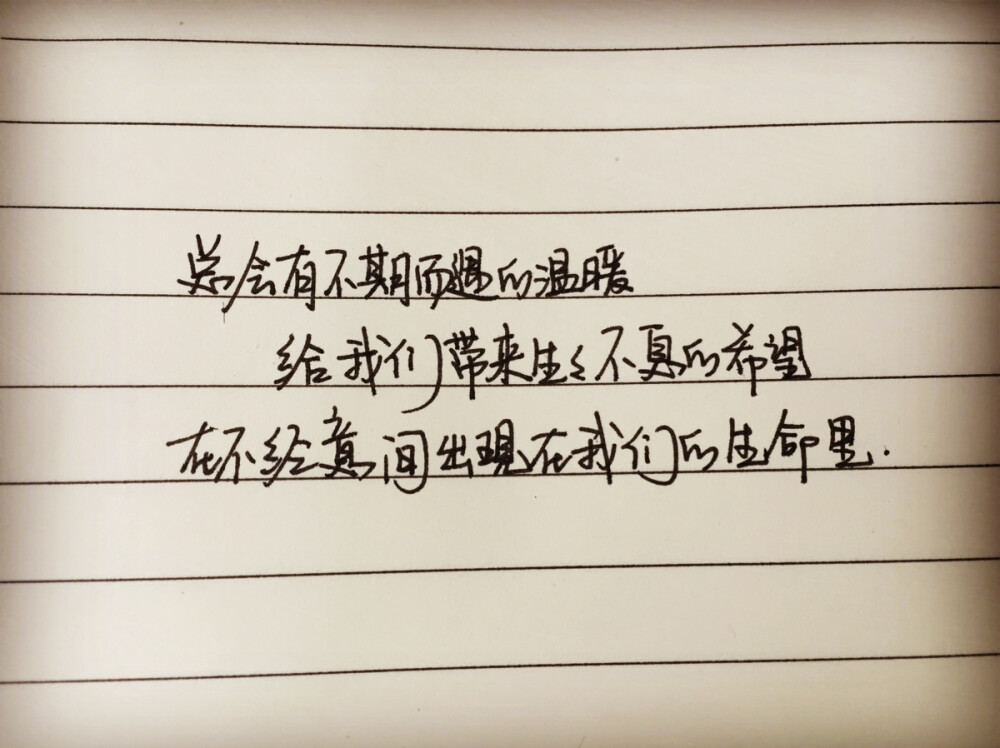 总会有不期而遇的温暖
给我们带来生々不息的希望
在不经意间出现在我们的生命里.